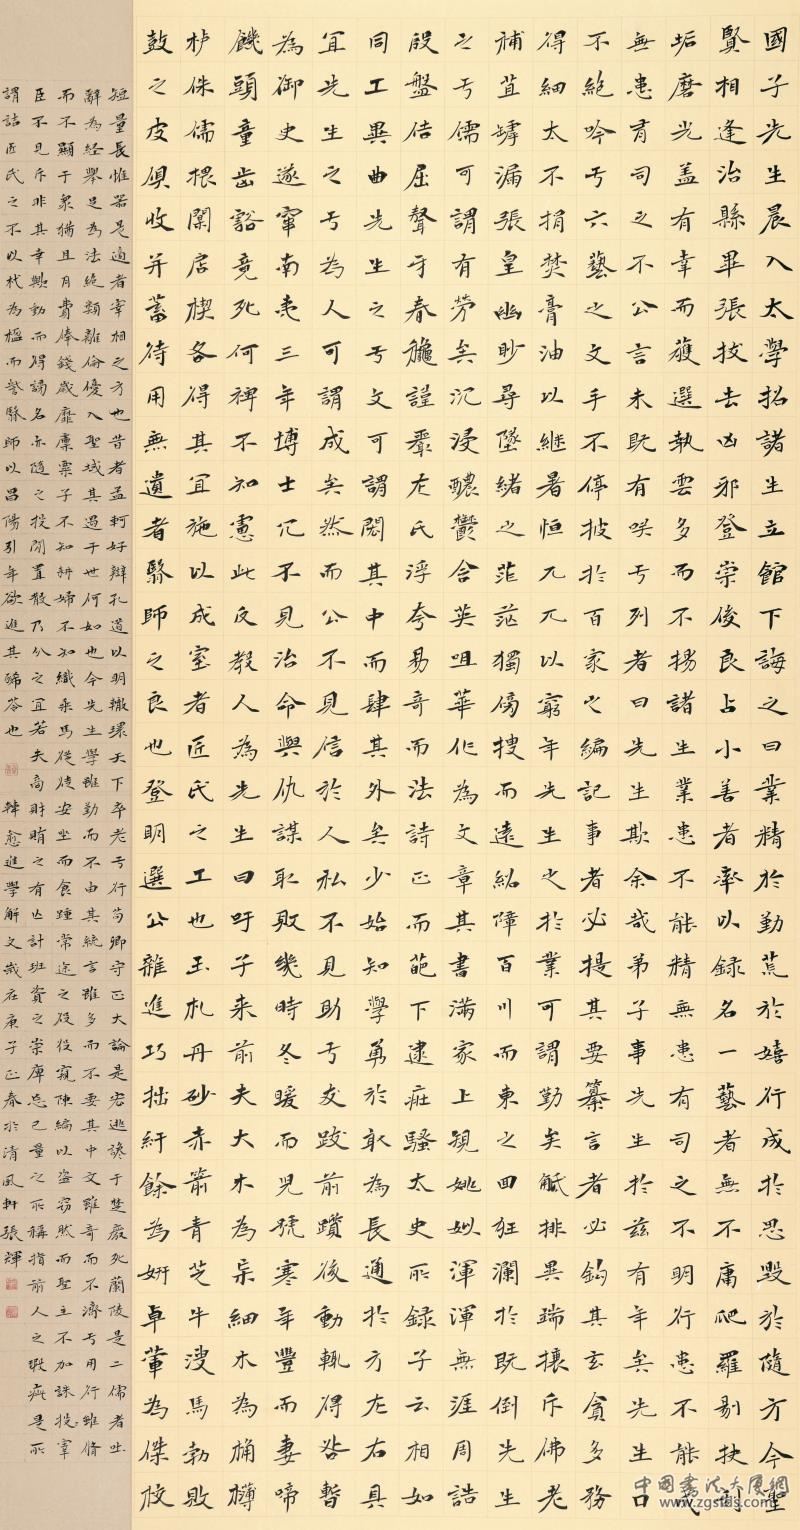 國子先生晨入太學招諸生立館下誨之曰業精於勤荒於嬉行成於思毀於隨方今聖
賢相逢治縣畢張拔去凶邪登崇俊良占小善者率以録名一藝者無不庸爬羅剔抉刮
垢磨光盖有幸而獲選孰雲多而不揚諸生業患不能精無患有司之不明行患不能成
無患有司之不公言未既有咲亏列者曰先生欺余哉弟子事先生於茲有年矣先生口
不絕吟亏六藝之文手不停披於百家之編記事者必提其要纂言者必鉤其玄貪多務
得細太不捐焚膏油以継晷恒兀兀以窮年先生之於業可謂勤矣觝排異端攘斥佛老
補苴罅漏張皇幽眇尋墜緒之茫茫獨傍搜而遠紹障百川而東之回狂瀾於既倒先生
之亏儒可謂有勞矣沉浸醲鬱含英咀華作為文章其書滿家上規姚姒渾渾無涯周誥
殷盤佶屈聱牙春龝謹嚴左氏浮夸易奇而法詩正而葩下逮莊騷太史所録子云相如
同工異曲先生之亏文可謂閎其中而肆其外矣少始知學勇於敢為長通於方左右具
宜先生之亏為人可謂成矣然而公不見信於人私不見助亏友跋前躓後動輒得咎暫
為御史遂竄南夷三年博士冗不見治命與仇謀取敗幾時冬暖而兒號寒年豐而妻啼
饑頭童齒豁竟死何裨不知慮此反教人為先生曰吁子来前夫大木為杗細木為桷欂
栌侏儒椳闑扂楔各得其宜施以成室者匠氏之工也玉札丹砂赤箭青芝牛溲馬勃敗
鼓之皮俱收并蓄待用無遺者醫師之良也登明選公雜進巧拙紆餘為妍卓犖為傑校
短量長惟若是適者宰相之方也昔者孟軻好辯孔道以明轍環天下卒老亏行荀卿守正大論是宏逃讒于楚廢死蘭陵是二儒者吐
辭為経舉足為法絶類離倫優入聖域其遇于世何如也今先生學雖勤而不由其統言雖多而不要其中文雖奇而不濟亏用行雖脩
而不顯于衆猶且月費俸錢歲靡廩粟子不知耕婦不知織乘馬從徒安坐而食踵常途之役役窺陳編以盗窃然而聖主不加誅投宰
臣不見斥非其幸歟動而得謗名亦随之投閑置散乃分之宜若夫商財賄之有亡計班資之崇庳忘己量之所稱指前人之瑕疵是所
謂詰匠氏之不以杙為楹而訾醫師以昌陽引年欲進其豨苓也 韓愈進學解文歲在庚子正春於清風軒張輝
中国书法大厦网
www.zgsfds.com